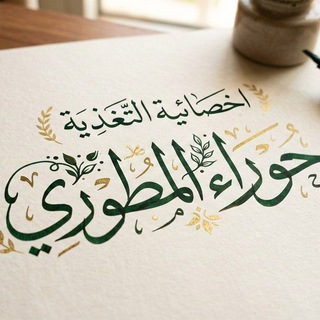 اخصائية التَّغذِيَة
حَورَاء المطوري